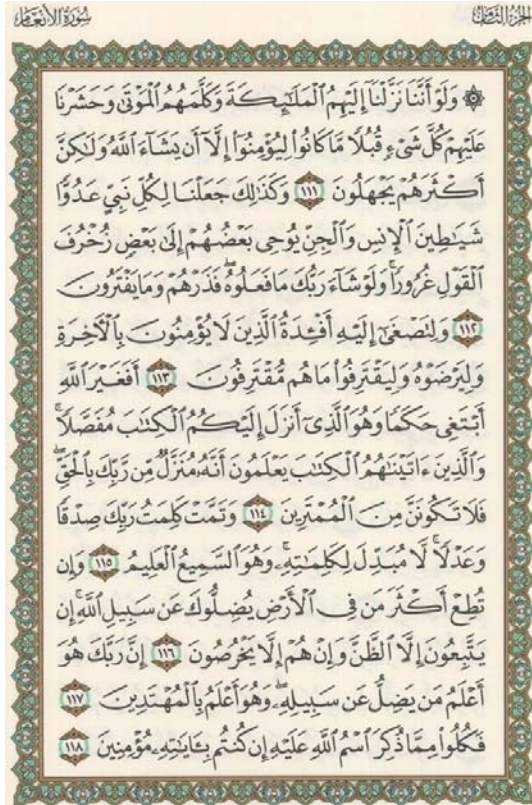 الجزء الثامن
سورة الأنعام
۞ وَلَوْ أَنَّنَا نَزَّلْنَا إِلَيْهِمُ الْمَلَٰٓئِكَةَ وَكَلَّمَهُمُ الْمَوْتَىٰ وَحَشَرْنَا
عَلَيْهِمْ كُلَّ شَىْءٍ قُبُلًا مَّا كَانُوا۟ لِيُؤْمِنُوٓا۟ إِلَّآ أَن يَشَآءَ ٱللَّهُ وَلَٰكِنَّ
أَكْثَرَهُمْ يَجْهَلُونَ ١١١ وَكَذَٰلِكَ جَعَلْنَا لِكُلِّ نَبِىٍّ عَدُوًّا
شَيَٰطِينَ ٱلْإِنسِ وَٱلْجِنِّ يُوحِى بَعْضُهُمْ إِلَىٰ بَعْضٍ زُخْرُفَ
ٱلْقَوْلِ غُرُورًا ۚ وَلَوْ شَآءَ رَبُّكَ مَا فَعَلُوهُ ۖ فَذَرْهُمْ وَمَا يَفْتَرُونَ
١١٢ وَلِتَصْغَىٰٓ إِلَيْهِ أَفْـِٔدَةُ ٱلَّذِينَ لَا يُؤْمِنُونَ بِٱلْـَٔاخِرَةِ
وَلِيَرْضَوْهُ وَلِيَقْتَرِفُوا۟ مَا هُم مُّقْتَرِفُونَ ١١٣ أَفَغَيْرَ ٱللَّهِ
أَبْتَغِى حَكَمًا وَهُوَ ٱلَّذِىٓ أَنزَلَ إِلَيْكُمُ ٱلْكِتَٰبَ مُفَصَّلًا ۚ
وَٱلَّذِينَ ءَاتَيْنَٰهُمُ ٱلْكِتَٰبَ يَعْلَمُونَ أَنَّهُۥ مُنَزَّلٌ مِّن رَّبِّكَ بِٱلْحَقِّ ۖ
فَلَا تَكُونَنَّ مِنَ ٱلْمُمْتَرِينَ ١١٤ وَتَمَّتْ كَلِمَتُ رَبِّكَ صِدْقًا
وَعَدْلًا ۚ لَّا مُبَدِّلَ لِكَلِمَٰتِهِۦ ۚ وَهُوَ ٱلسَّمِيعُ ٱلْعَلِيمُ ١١٥ وَإِن
تُطِعْ أَكْثَرَ مَن فِى ٱلْأَرْضِ يُضِلُّوكَ عَن سَبِيلِ ٱللَّهِ ۚ إِن
يَتَّبِعُونَ إِلَّا ٱلظَّنَّ وَإِنْ هُمْ إِلَّا يَخْرُصُونَ ١١٦ إِنَّ رَبَّكَ هُوَ
أَعْلَمُ مَن يَضِلُّ عَن سَبِيلِهِۦ ۖ وَهُوَ أَعْلَمُ بِٱلْمُهْتَدِينَ ١١٧
فَكُلُوا۟ مِمَّا ذُكِرَ ٱسْمُ ٱللَّهِ عَلَيْهِ إِن كُنتُم بِـَٔايَٰتِهِۦ مُؤْمِنِينَ ١١٨